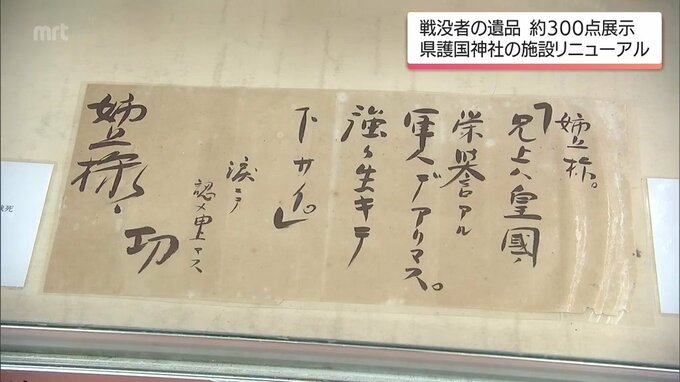 mrt
戦没者の遺品 約300点展示
県護国神社の施設リニューアル
姉上様。
「兄上ハ皇國ノ
栄誉アル
軍人デアリマス。
強ク生キテ
下サイ」
涙ヲ
認メ申上マス
功
姉上様へ
死